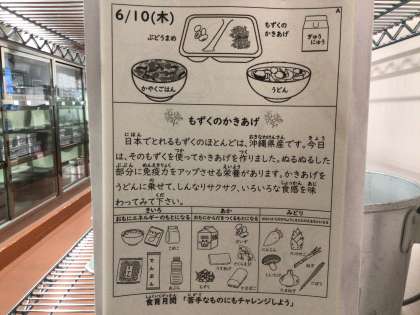 6/10(木)
A
ぶどうまめ
もずくの
かきあげ
ぎゅう
にゅう
かやくごはん
うどん
もずくのかきあげ
日本でとれるもずくのほとんどは、沖縄県産です。今日
は、そのもずくを使ってかきあげを作りました。ぬるぬるした
部分に免疫力をアップさせる栄養があります。かきあげを
うどんに乗せて、しんなりサクサク、いろいろな食感を味
わってみて下さい。
きいろ
あか
みどり
おもにエネルギーのもとになる
おもにからだをつくるもとになる
こめこ
でんぷん
だいず
もずく
にんじん
ねぎ
ごぼう
食育月間 「苦手なものにもチャレンジしよう」